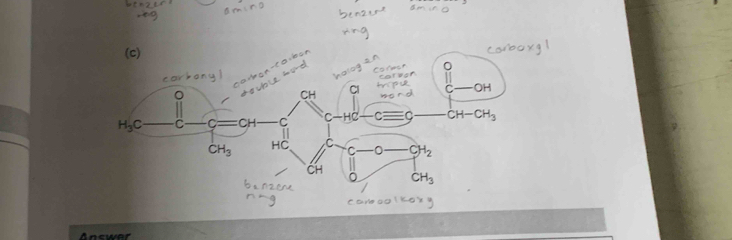 benzene
ring
amino
benzene
ring
amino
(c)
carbonyl
carbon-carbon
double bond
halogen
carbon
carbon
triple
bond
carboxyl
O
Cl
O
CH
C
OH
H₃C
C
C
CH
C
C
HC
C
C
CH
CH₃
CH₃
HC
C
C
O
CH₂
CH
O
CH₃
benzene
ring
carboalkoxy
Answer